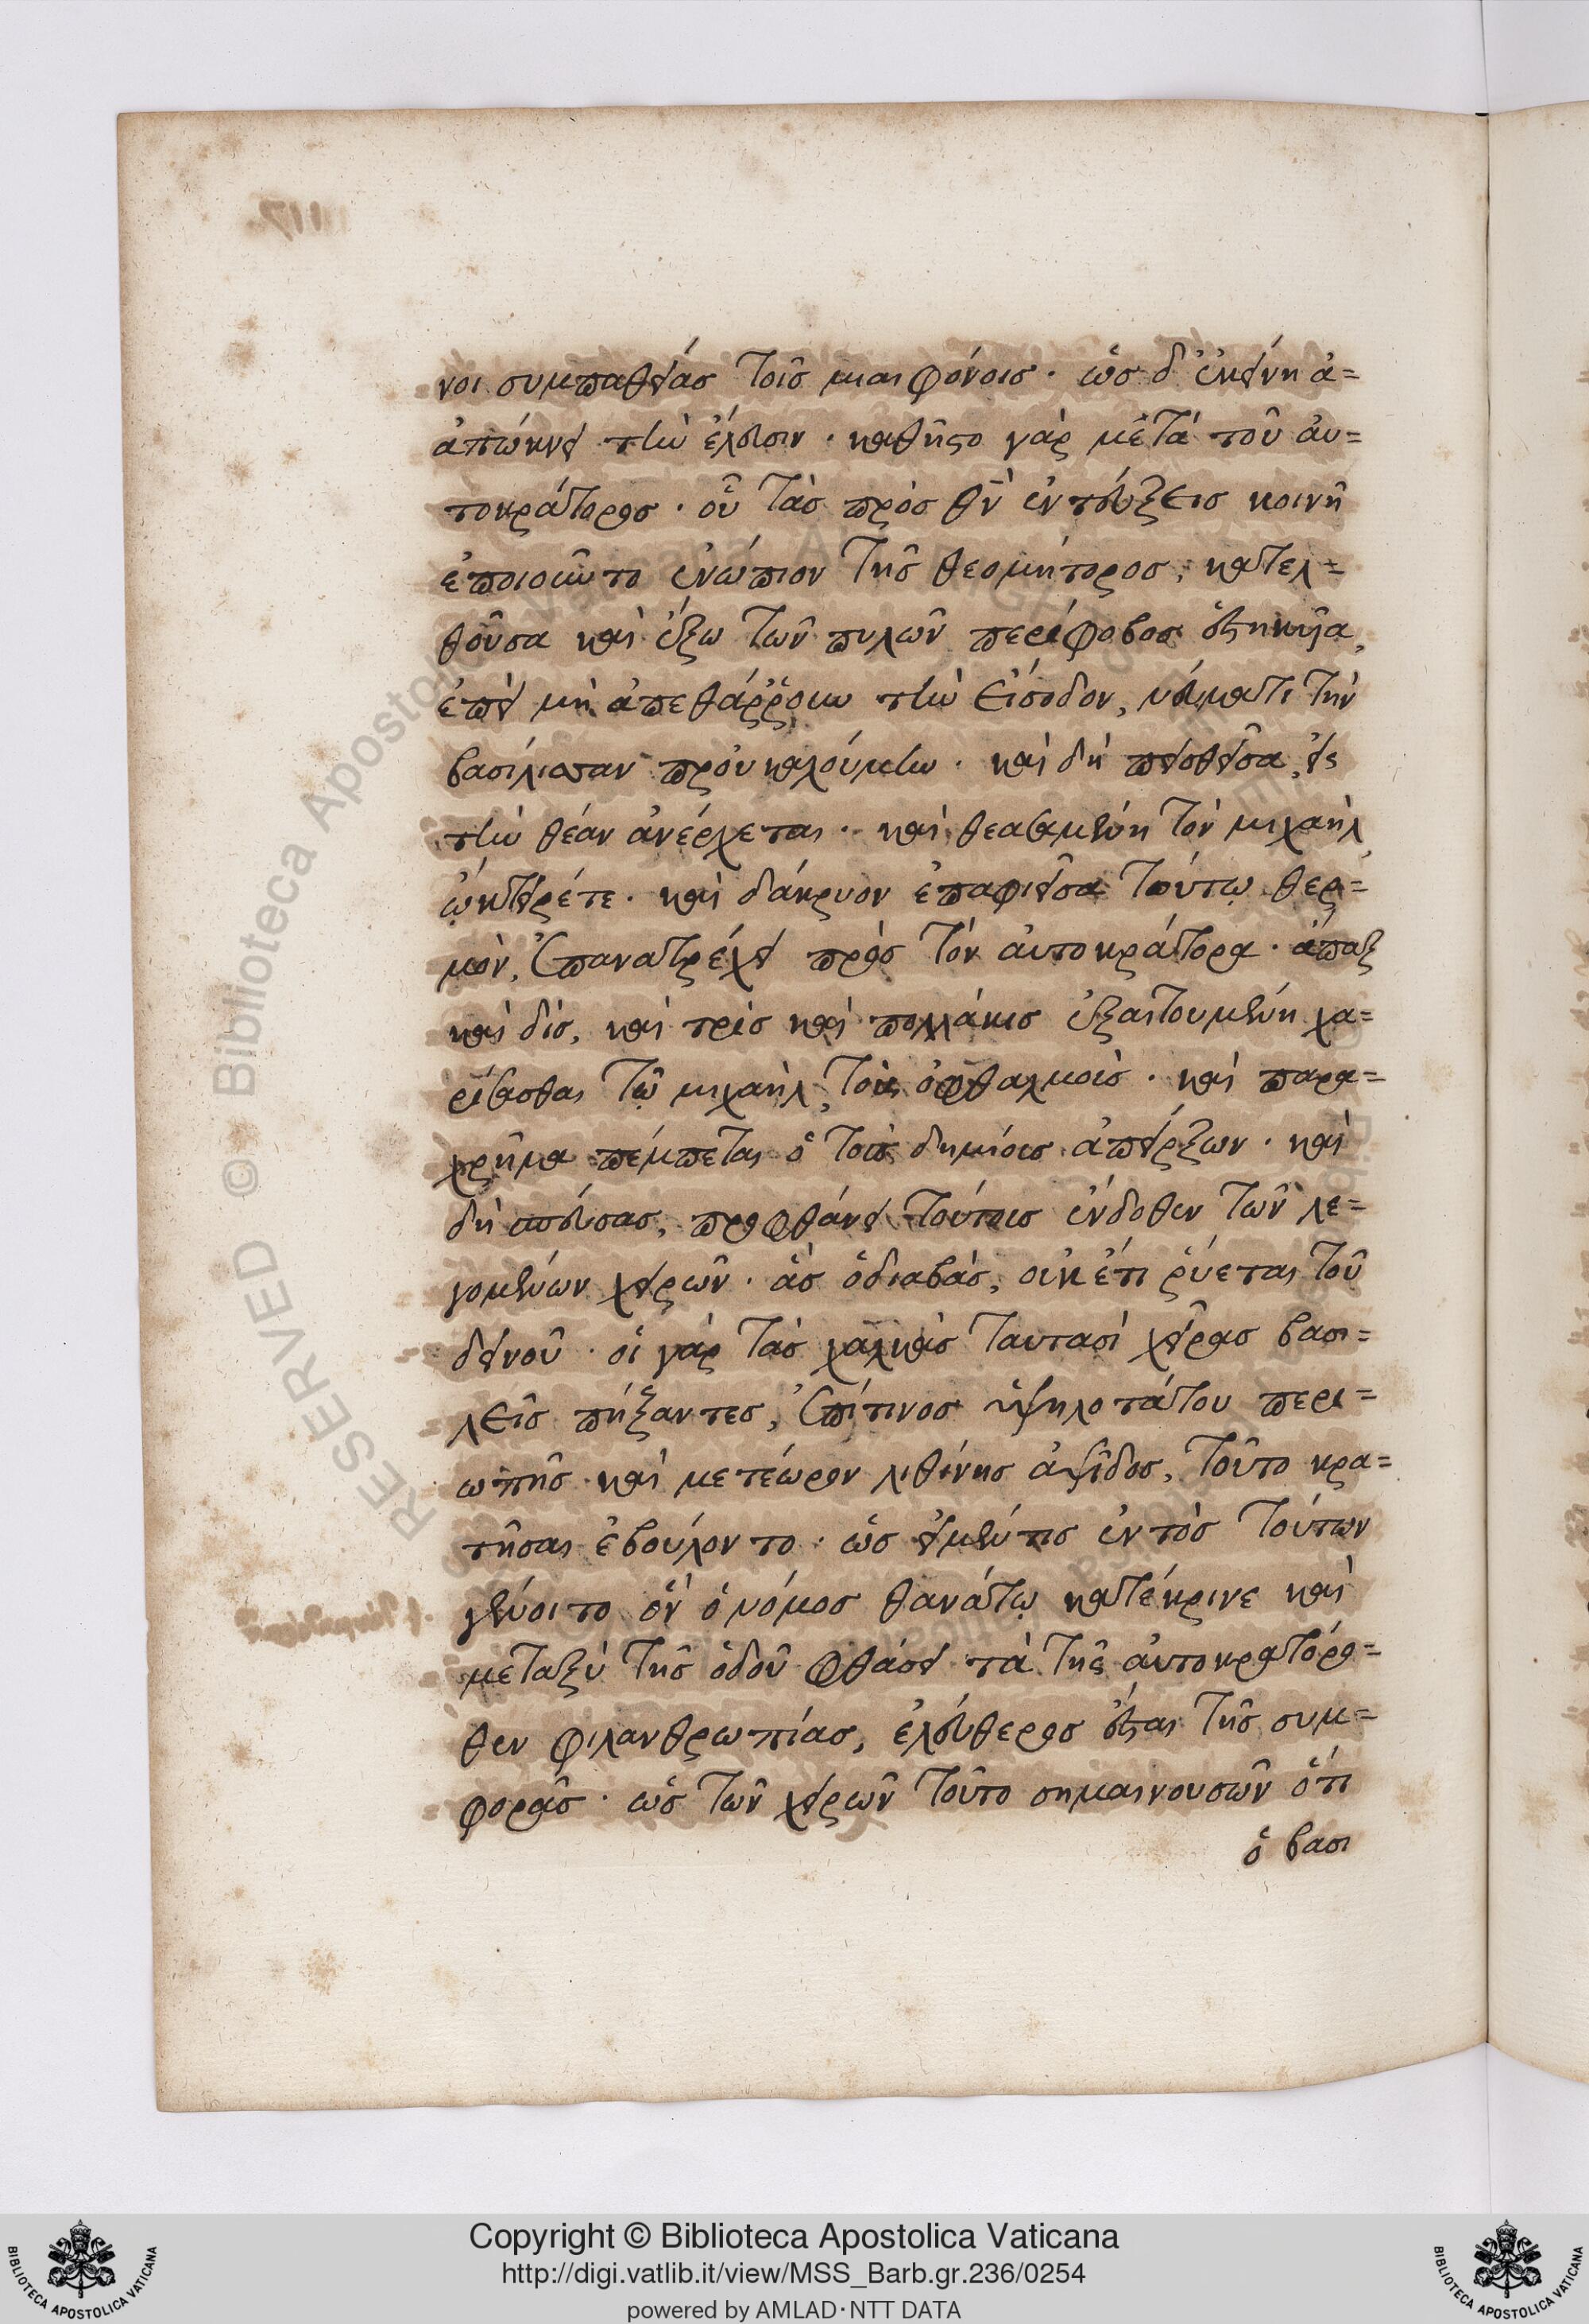 νοι συμπαθείας τοῖς μιαιφόνοις · ὡς δ' ἐκείνη ἀ=
ἀπώκνει τὴν ἔλευσιν · καθῆστο γὰρ μετὰ τοῦ αὐ=
τοκράτορος · οὗ τὰς πρὸς θν̄ ἐντεύξεις κοινῇ
ἐποιοῦντο ἐνώπιον τῆς θεομήτορος, κατελ=
θοῦσα καὶ ἔξω τῶν πυλῶν περίφοβος ἑστηκυῖα,
ἐπεὶ μὴ ἀπεθάρρουν τὴν εἴσοδον, νεύματι τὴν
βασίλισσαν προὐκαλούμην · καὶ δὴ πεισθεῖσα, εἰς
τὴν θέαν ἀνέρχεται · καὶ θεασαμένη τὸν μιχαὴλ
ᾠκτείρετε · καὶ δάκρυον ἐπαφιεῖσα τούτῳ θερ=
μὸν, ἐπανατρέχει πρὸς τὸν αὐτοκράτορα · ἅπαξ
καὶ δὶς, καὶ τρὶς καὶ πολλάκις ἐξαιτουμένη χα=
ρίσασθαι τῷ μιχαὴλ, τοὺς ὀφθαλμοὺς · καὶ παρα=
χρῆμα πέμπεται ὁ τοὺς δημίους ἀπείρξων · καὶ
δὴ σπεύσας, προφθάνει τούτοις ἔνδοθεν τῶν λε=
γομένων χειρῶν · ἃς ὁ διαβὰς, οὐκ έτι ῥύεται τοῦ
δεινοῦ · οἱ γὰρ τὰς χαλκᾶς ταυτασὶ χεῖρας βασι=
λεῖς πήξαντες, ἐπί τινος ὑψηλοτάτου περι=
ωπῆς καὶ μετεώρου λιθίνης ἀψῖδος, τοῦτο κρα=
τῆσαι ἐβούλοντο · ὡς εἰ μέν τις ἐντὸς τούτων
γένοιτο ὃν ὁ νόμος θανάτῳ κατέκρινε καὶ
μεταξὺ τῆς ὁδοῦ φθάσει τὰ τῆς αὐτοκρατορό=
θεν φιλανθρωπίας, ἐλεύθερος ἔσται τῆς συμ=
φορᾶς · ὡς τῶν χειρῶν τοῦτο σημαινουσῶν ὅτι
ὁ βασι
RESERVED © Biblioteca Apostolica Vaticana
BIBLIOTECA APOSTOLICA VATICANA
Copyright © Biblioteca Apostolica Vaticana
http://digi.vatlib.it/view/MSS_Barb.gr.236/0254
powered by AMLAD·NTT DATA
BIBLIOTECA APOSTOLICA VATICANA